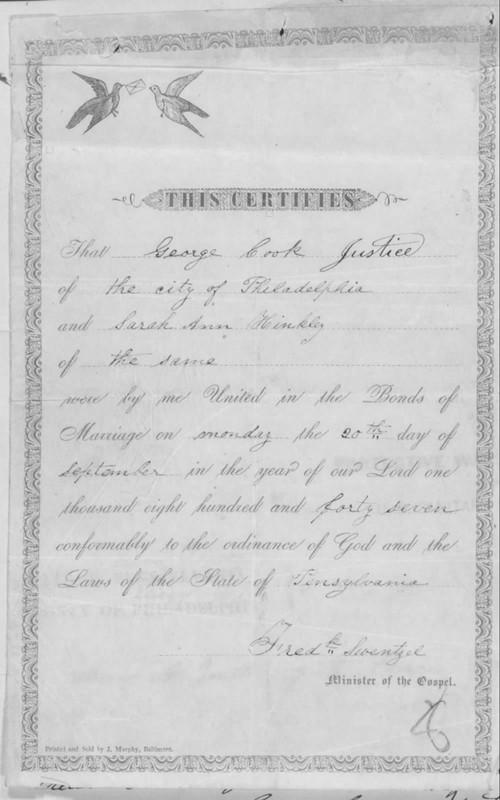 THIS CERTIFIES
That George Cook Justice
of the city of Philadelphia
and Sarah Ann Hinkley
of the same
were by me United in the Bonds of
Marriage on monday the 20th day of
September in the year of our Lord one
thousand eight hundred and forty seven
conformably to the ordinance of God and the
Laws of the State of Pensylvania
Fredk Swentzel
Minister of the Gospel.
Printed and Sold by J. Murphy, Baltimore.